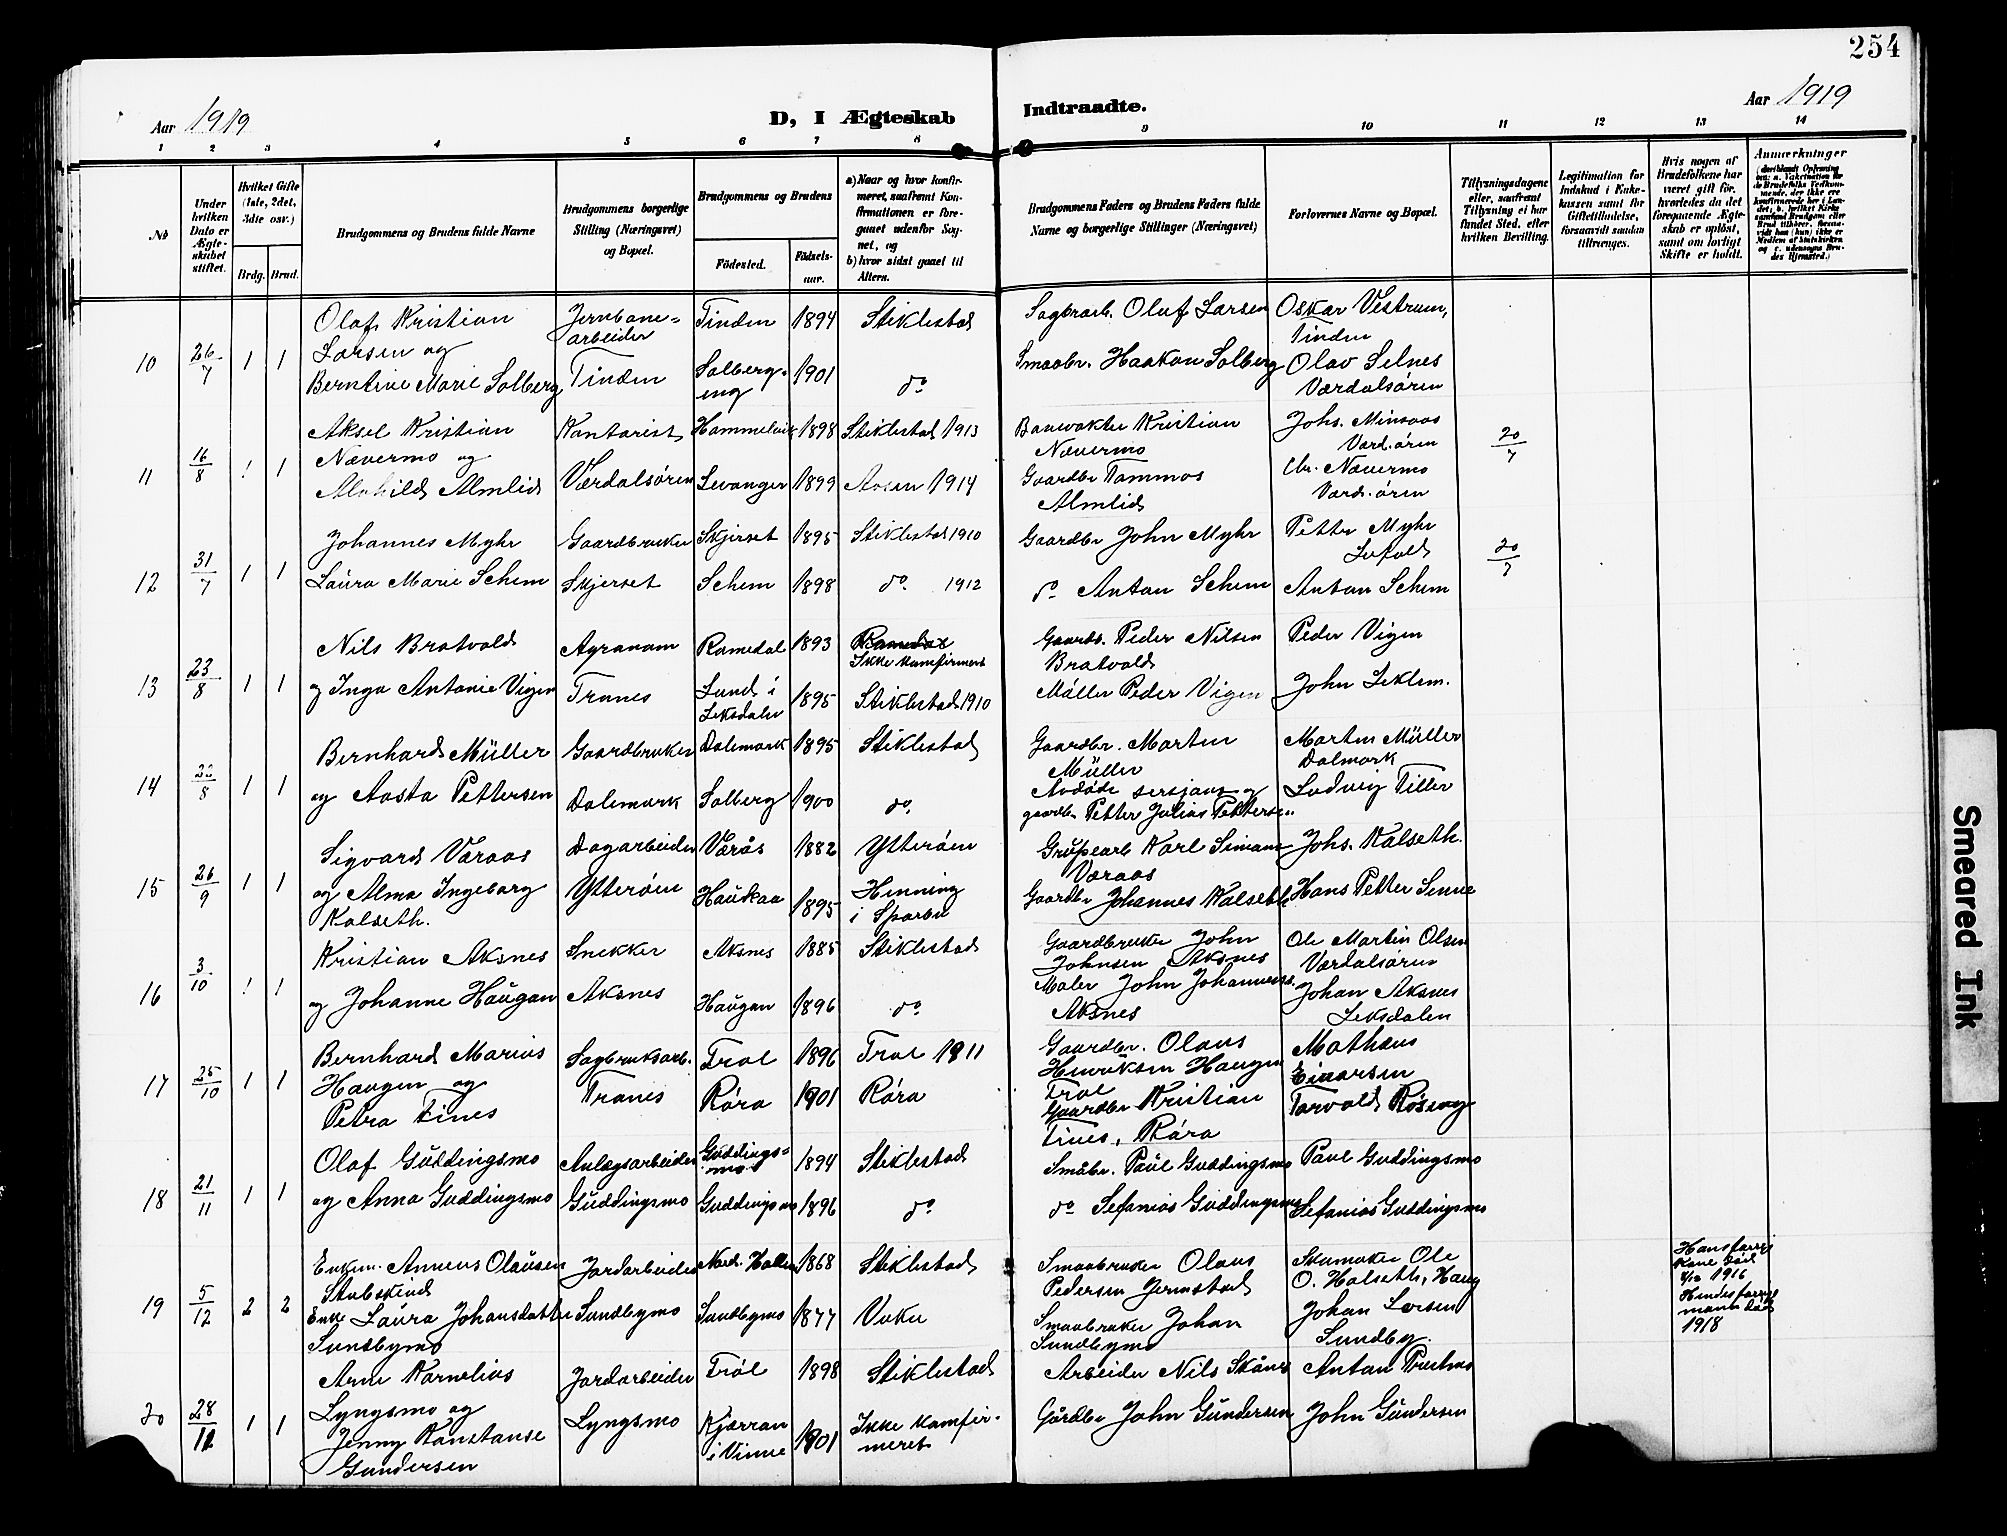 254
Aar 1919
D, I Ægteskab
Indtraadte.
Aar 1919
1 2 3 4 5 6 7 8 9 10 11 12 13 14
No
Under hvilken Dato er Ægteskabet stiftet.
Hvilket Gifte (1ste, 2det, 3die osv.)
Brdg. Brud.
Brudgommens og Brudens fulde Navne
Brudgommens borgerlige Stilling (Næringsvei) og Bopæl.
Brudgommens og Brudens
Fødested.
Fødselsaar.
a) Naar og hvor konfirmeret, saafremt Konfirmationen er foregaaet udenfor Sognet, og
b) hvor sidst gaaet til Alters.
Brudgommens Faders og Brudens Faders fulde Navne og borgerlige Stillinger (Næringsvei)
Forlovernes Navne og Bopæl.
Tillysningsdagene eller, saafremt Tillysning ei har fundet Sted, efter hvilken Bevilling.
Legitimation for Indskud i Enkekassen samt for Giftetilladelse, forsaavidt saadan tiltrænges.
Hvis nogen af Brudefolkene har været gift før, hvorledes da det foregaaende Ægteskab er opløst, samt om lovligt Skifte er holdt.
Anmærkninger
10 26/7 1 1
Olaf Kristian
Larsen og
Berntine Marie Solberg
Jernbane-
arbeider
Tinden
Tinden 1894 Stiklestad
Solberg-
eng 1901 do
Sagbrarb. Oluf Larsen
Smaabr. Haakon Solberg
Oskar Vestrum,
Tinden
Olav Selnes
Værdalsøren
11 16/8 1 1
Aksel Kristian
Nævermo og
Alvhild Almlid
Kontorist
Værdalsøren
Hammelvik 1898 Stiklestad 1913
Levanger 1899 Aasen 1914
Banevokter Kristian
Nævermo
Gaardbr Tommas
Almlid
Johs. Minsaas
Værd.øren
Chr. Nævermo
Værd.øren
20/7
12 31/7 1 1
Johannes Myhr
Laura Marie Schem
Gaardbruker
Skjerset
Skjerset 1895 Stiklestad 1910
Schem 1898 do. 1912
Gaardbr John Myhr
do Anton Schem
Petter Myhr
Anton Schem
20/7
13 23/8 1 1
Nils Bratvold
og Inga Antonie Vigen
Agronom
Trones
Ramedal 1893
Ikke konfirmert
Lund i
Leksdalen 1895 Stiklestad 1910
Gaardb. Peder Nilsen
Bratvold
Møller Peder Vigen
Peder Vigen
John Leklem.
14 22/8 1 1
Bernhard Müller
og Aasta Pettersen
Gaardbruker
Dalemark
Dalemark 1895 Stiklestad
Solberg 1900 do.
Gaardbr. Morten
Müller
Avdøde sersjant og
gaardbr Petter Julius Pettersen
Morten Müller
Dalmark
Ludvig Tiller
15 26/9 1 1
Sigvard Væraas
og Alma Ingeborg
Kalseth.
Dagarbeider
Ytterøen
Værås 1882 Ytterøen
Haukaa 1895 Henning
i Sparbu
Grubearb Karl Simons
Væraas
Gaardbr Johannes Kalseth
Johs. Kalseth.
Hans Petter Sinne
16 3/10 1 1
Kristian Aksnes
og Johanne Haugan
Snekker
Aksnes
Aksnes 1885 Stiklestad
Haugan 1896 do.
Gaardbruker John
Johnsen Aksnes
Maler John Johanness.
Aksnes
Ole Martin Olsen
Værdalsøren
Johan Aksnes
Leksdalen
17 25/10 1 1
Bernhard Marius
Haugen og
Petra Tines
Sagbruksarb.
Trones
Frol 1896 Frol 1911
Røra 1901 Røra
Gaardbr. Olaus
Henriksen Haugen
Frol
Gaardbr Kristian
Tines, Røra
Mathæus
Einarsen
Torvald Røseng
18 21/11 1 1
Olaf Guddingsmo
og Anna Guddingsmo
Anlægsarbeider
Guddingsmo
Guddings-
mo 1894 Stiklestad
Guddingsmo 1896 do
Småbr. Paul Guddingsmo
do Sefanias Guddingsmo
Paul Guddingsmo
Sefanias Guddingsmo
19 5/12 2 2
Enkem. Anneus Olausen
Stubskind
Enke Laura Johansdatter
Sundbymo
Jordarbeider
Sundbymo
Nord. Hallem 1868 Stiklestad
Sundbymo 1877 Vuku
Smaabruker Olaus
Pedersen Jermstad
Smaabruker Johan
Sundbymo
Skomaker Ole
O. Halseth, Haug
Johan Larsen
Sundby.
Hans forrige
kone død
1916
Hendes forrige
mann død
1918
20 28/11 1 1
Arne Kornelius
Lyngsmo og
Jenny Konstanse
Gundersen
Jordarbeider
Lyngsmo
Frol 1898 Stiklestad
Kjærran
i Vinne 1901 Ikke konfir-
meret
Arbeider Nils Skåne
Gårdbr John Gundersen
Anton Prestmo
John Gundersen
Smeared Ink